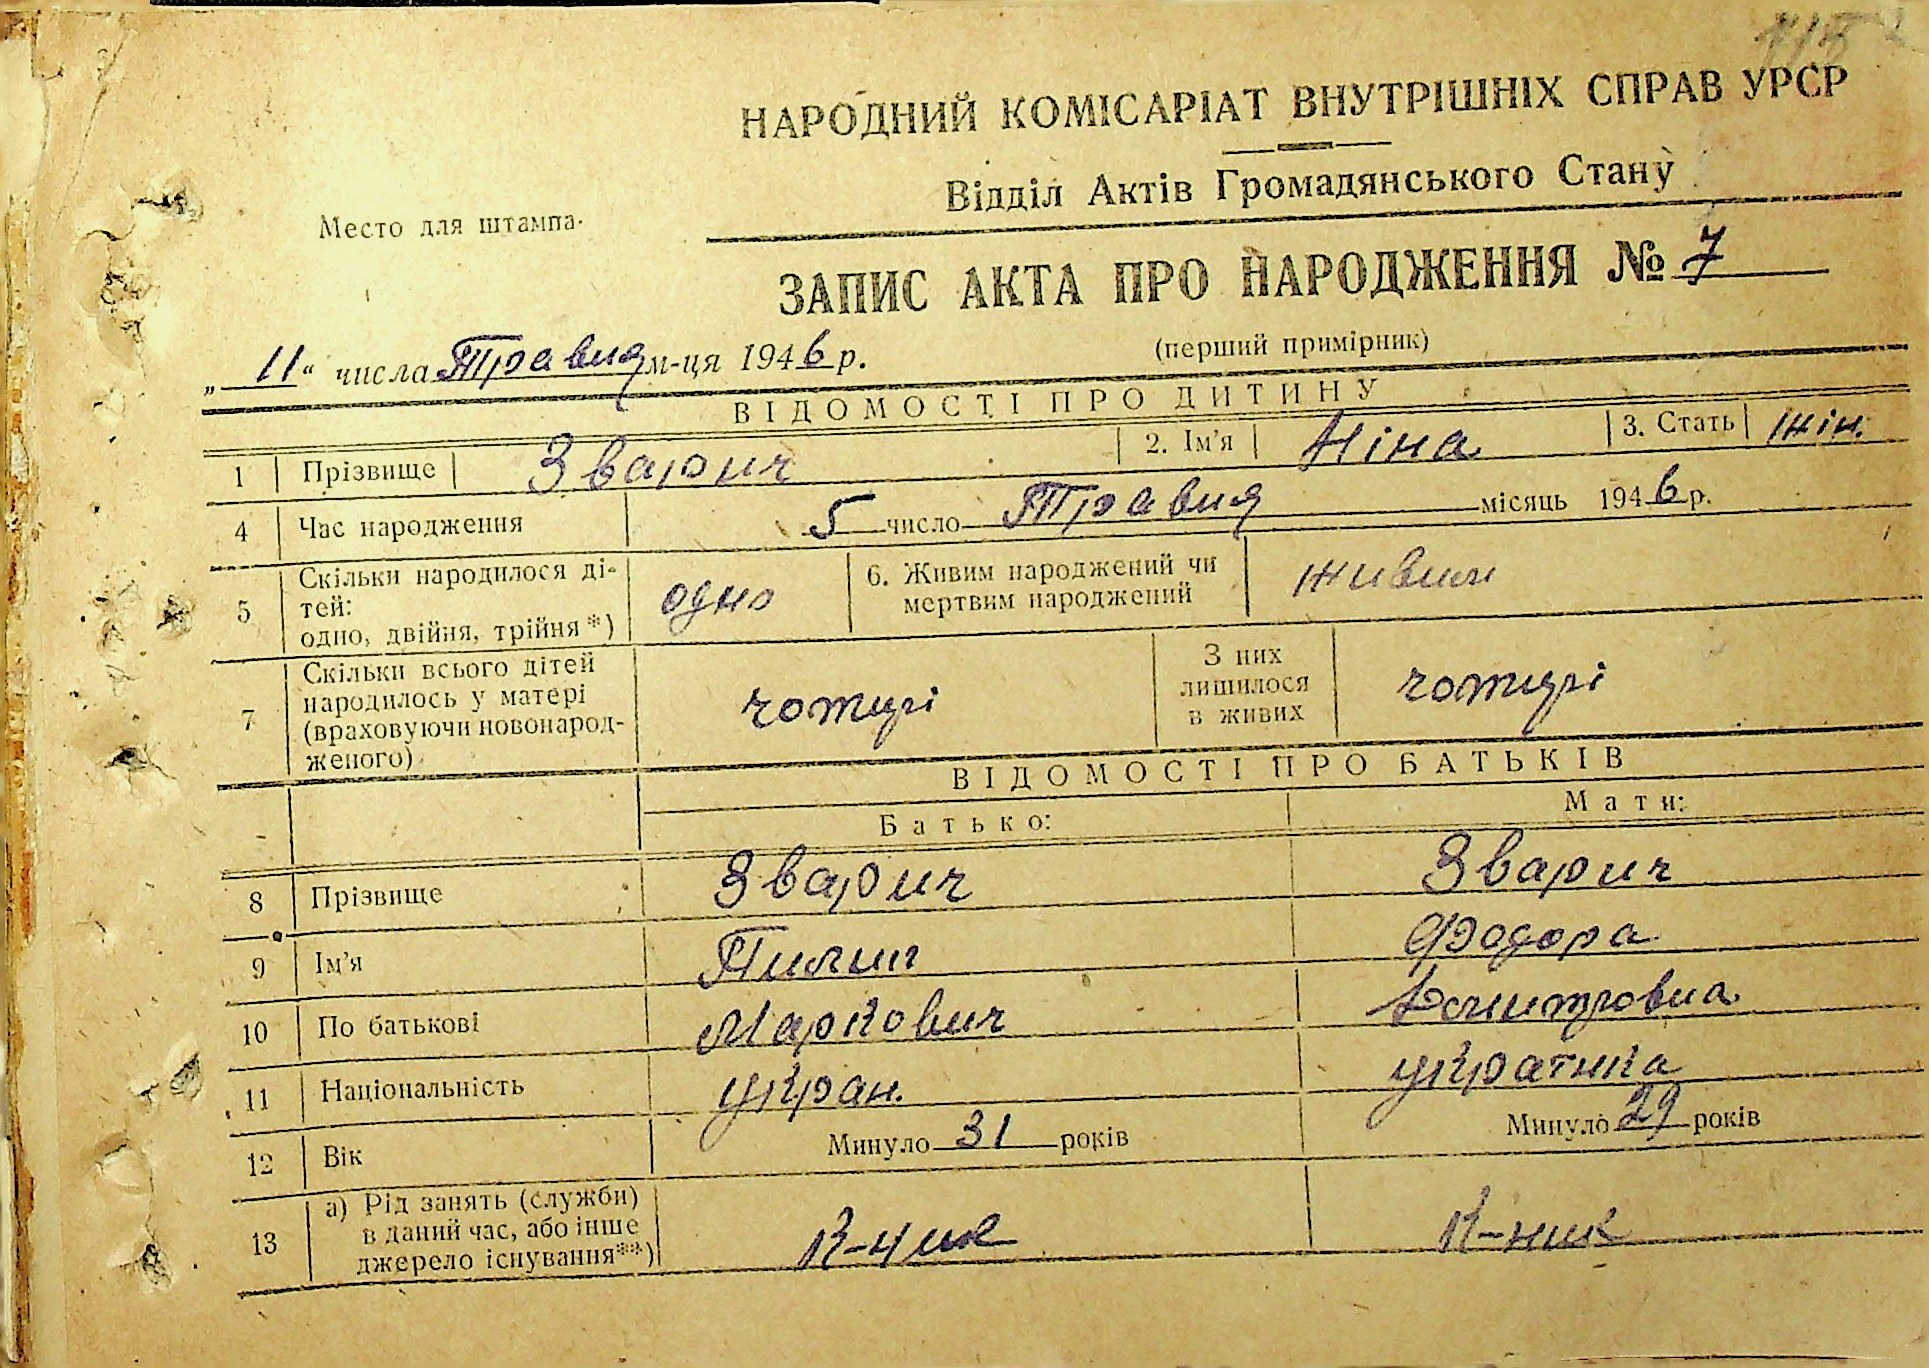 НАРОДНИЙ КОМІСАРІАТ ВНУТРІШНІХ СПРАВ УРСР
Відділ Актів Громадянського Стану
Место для штампа.
ЗАПИС АКТА ПРО НАРОДЖЕННЯ № 7
(перший примірник)
„ 11 “ числа Травня м-ця 1946 р.
ВІДОМОСТІ ПРО ДИТИНУ
1 Прізвище Зварич 2. Ім'я Ніна 3. Стать жін.
4 Час народження 5 число Травня місяць 1946 р.
5 Скільки народилося ді-
тей:
одно, двійня, трійня*) одно 6. Живим народжений чи
мертвим народжений живим
7 Скільки всього дітей
народилось у матері
(враховуючи новонарод-
женого) чотирі З них
лишилося
в живих чотирі
ВІДОМОСТІ ПРО БАТЬКІВ
Батько: Мати:
8 Прізвище Зварич Зварич
9 Ім'я Пилип Федора
10 По батькові Маркович Дмитровна
11 Національність укран. українка
12 Вік Минуло 31 років Минуло 29 років
13 а) Рід занять (служби)
в даний час, або інше
джерело існування**) К-ник К-ник